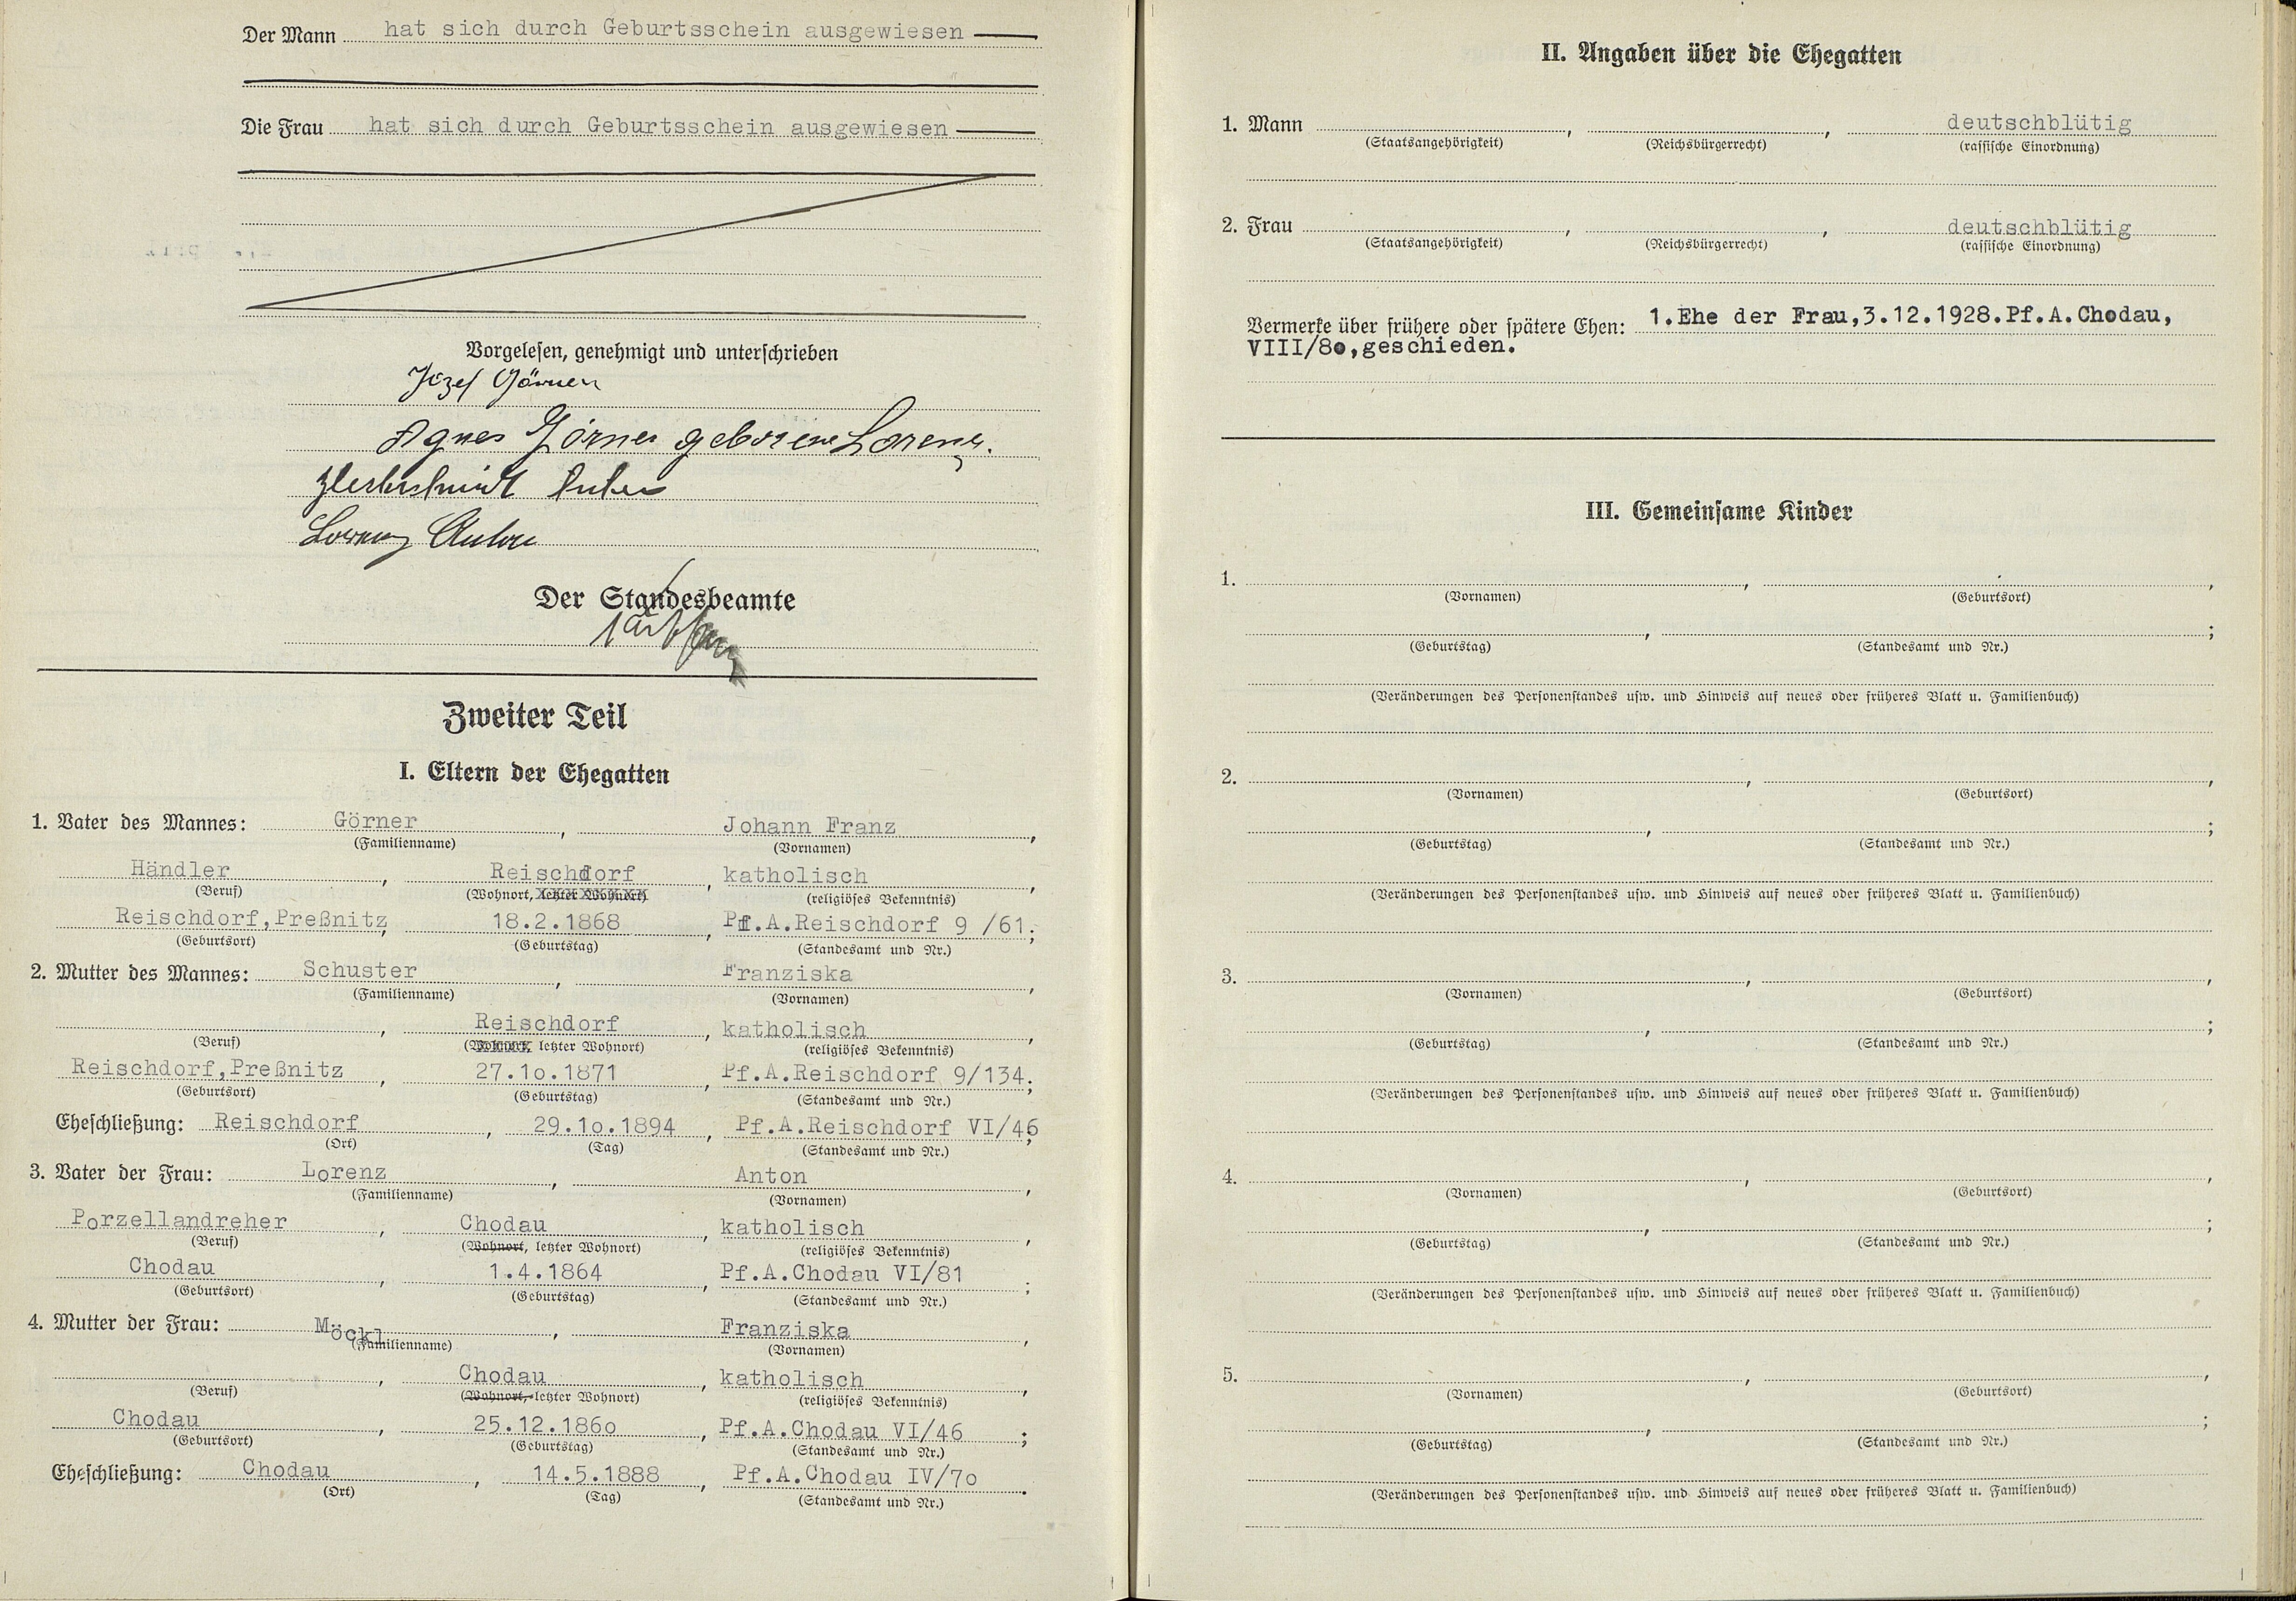 Der Mann hat sich durch Geburtsschein ausgewiesen
Die Frau hat sich durch Geburtsschein ausgewiesen
Vorgelesen, genehmigt und unterschrieben
Josef Görner
Agnes Görner geborene Lorenz.
Lorenz Anton
Der Standesbeamte
Zweiter Teil
I. Eltern der Ehegatten
1. Vater des Mannes: Görner, Johann Franz,
(Familienname) (Vornamen)
Händler, Reischdorf, katholisch,
(Beruf) (Wohnort, letzter Wohnort) (religiöses Bekenntnis)
Reischdorf,Preßnitz, 18.2.1868, Pf.A.Reischdorf 9 /61;
(Geburtsort) (Geburtstag) (Standesamt und Nr.)
2. Mutter des Mannes: Schuster, Franziska,
(Familienname) (Vornamen)
, Reischdorf, katholisch,
(Beruf) (Wohnort, letzter Wohnort) (religiöses Bekenntnis)
Reischdorf,Preßnitz, 27.1o.1871, Pf.A.Reischdorf 9/134;
(Geburtsort) (Geburtstag) (Standesamt und Nr.)
Eheschließung: Reischdorf, 29.1o.1894, Pf.A.Reischdorf VI/46;
(Ort) (Tag) (Standesamt und Nr.)
3. Vater der Frau: Lorenz, Anton,
(Familienname) (Vornamen)
Porzellandreher, Chodau, katholisch,
(Beruf) (Wohnort, letzter Wohnort) (religiöses Bekenntnis)
Chodau, 1.4.1864, Pf.A.Chodau VI/81;
(Geburtsort) (Geburtstag) (Standesamt und Nr.)
4. Mutter der Frau: Möckl, Franziska,
(Familienname) (Vornamen)
, Chodau, katholisch,
(Beruf) (Wohnort, letzter Wohnort) (religiöses Bekenntnis)
Chodau, 25.12.186o, Pf.A.Chodau VI/46;
(Geburtsort) (Geburtstag) (Standesamt und Nr.)
Eheschließung: Chodau, 14.5.1888, Pf.A.Chodau IV/7o.
(Ort) (Tag) (Standesamt und Nr.)
II. Angaben über die Ehegatten
1. Mann , , deutschblütig
(Staatsangehörigkeit) (Reichsbürgerrecht) (rassische Einordnung)
2. Frau , , deutschblütig
(Staatsangehörigkeit) (Reichsbürgerrecht) (rassische Einordnung)
Vermerke über frühere oder spätere Ehen: 1.Ehe der Frau,3.12.1928.Pf.A.Chodau,
VIII/8o,geschieden.
III. Gemeinsame Kinder
1. , ,
(Vornamen) (Geburtsort)
, ;
(Geburtstag) (Standesamt und Nr.)
(Veränderungen des Personenstandes usw. und Hinweis auf neues oder früheres Blatt u. Familienbuch)
2. , ,
(Vornamen) (Geburtsort)
, ;
(Geburtstag) (Standesamt und Nr.)
(Veränderungen des Personenstandes usw. und Hinweis auf neues oder früheres Blatt u. Familienbuch)
3. , ,
(Vornamen) (Geburtsort)
, ;
(Geburtstag) (Standesamt und Nr.)
(Veränderungen des Personenstandes usw. und Hinweis auf neues oder früheres Blatt u. Familienbuch)
4. , ,
(Vornamen) (Geburtsort)
, ;
(Geburtstag) (Standesamt und Nr.)
(Veränderungen des Personenstandes usw. und Hinweis auf neues oder früheres Blatt u. Familienbuch)
5. , ,
(Vornamen) (Geburtsort)
, ;
(Geburtstag) (Standesamt und Nr.)
(Veränderungen des Personenstandes usw. und Hinweis auf neues oder früheres Blatt u. Familienbuch)